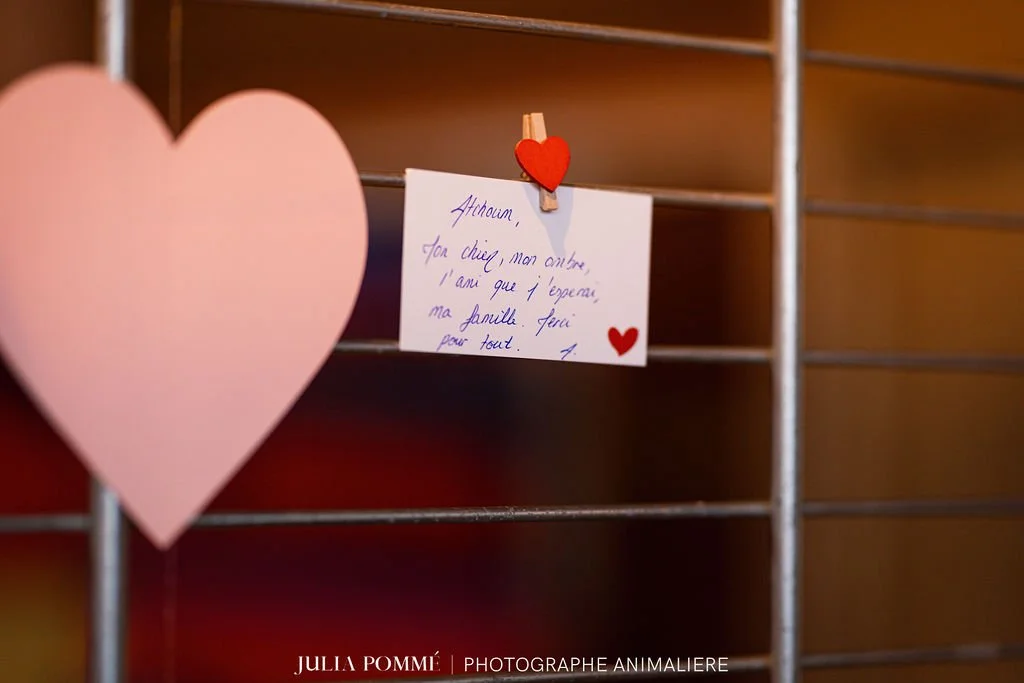 Atchoum,
Mon chien, mon ombre,
l'ami que j'esperai,
ma famille. Merci
pour tout. A.
JULIA POMMÉ | PHOTOGRAPHE ANIMALIERE